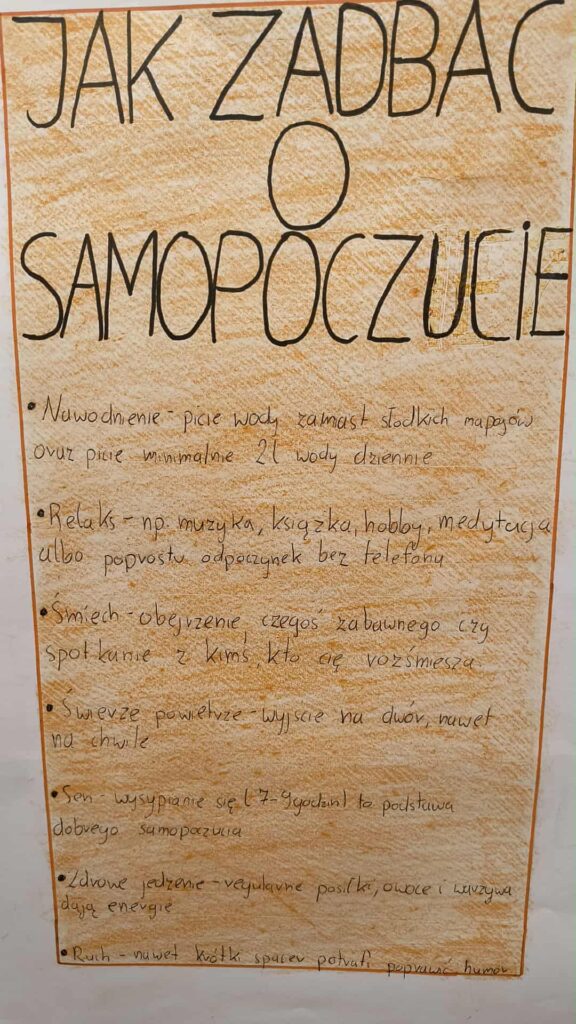 JAK ZADBAĆ
O
SAMOPOCZUCIE
• Nawodnienie - picie wody zamast słodkich napojów
oraz picie minimalnie 2l wody dziennie
• Relaks - np. muzyka, książka, hobby, medytacja
albo poprostu odpoczynek bez telefonu
• Śmiech - obejrzenie czegoś zabawnego czy
spotkanie z kimś, kto cię rozśmiesza
• Świerze powietrze - wyjście na dwór, nawet
na chwile
• Sen - wysypianie się (7-9godzin) to podstawa
dobrego samopoczucia
• Zdrowe jedzenie - regularne posiłki, owoce i warzywa
dają energie
• Ruch - nawet krótki spacer potrafi poprawić humor